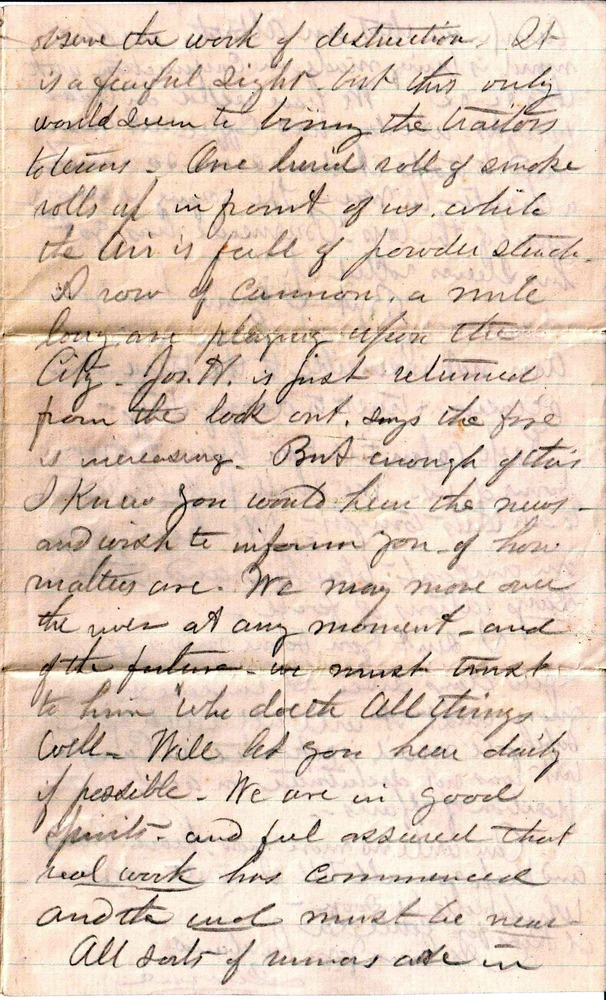 observe the work of destruction. It
is a fearful sight, but this only
would seem to bring the traitors
to terms - One lurid roll of smoke
rolls up in front of us, while
the air is full of powder stench.
A row of cannon, a mile
long are playing upon the
City - Jos. H. is just returned
from the look out, says the fire
is increasing. But enough of this
I knew you would hear the news -
and wish to inform you of how
matters are. We may move over
the river at any moment - and
of the future - we must trust
to him "who doeth All things
Well - Will let you hear daily
if possible - We are in good
spirits - and feel assured that
real work has commenced
and the end must be near
All sorts of rumors are in